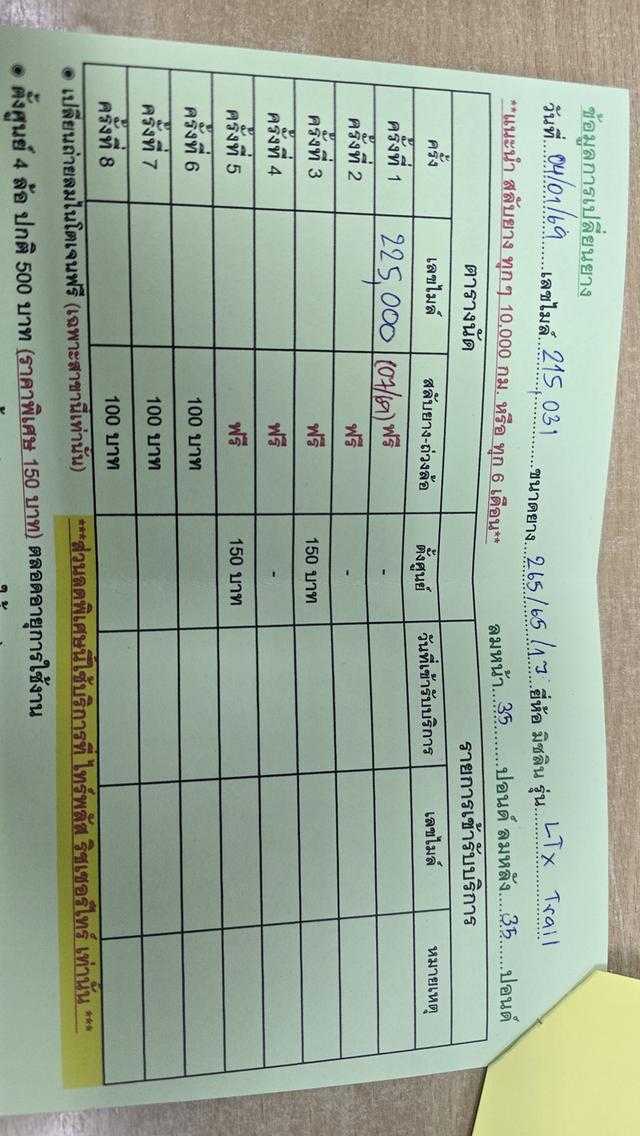 ข้อมูลการเปลี่ยนยาง
วันที่ 04/01/69 เลขไมล์ 215,031 ขนาดยาง 265/65/17 ยี่ห้อ มิชลิน รุ่น LTX Trail
**แนะนำ สลับยาง ทุกๆ 10,000 กม. หรือ ทุก 6 เดือน** ลมหน้า 35 ปอนด์ ลมหลัง 35 ปอนด์
ตารางนัด รายการเข้ารับบริการ
ครั้ง เลขไมล์ สลับยาง-ถ่วงล้อ ตั้งศูนย์ วันที่เข้ารับบริการ เลขไมล์ หมายเหตุ
ครั้งที่ 1 225,000 (07/69) ฟรี -
ครั้งที่ 2 ฟรี -
ครั้งที่ 3 ฟรี 150 บาท
ครั้งที่ 4 ฟรี -
ครั้งที่ 5 ฟรี 150 บาท
ครั้งที่ 6 100 บาท
ครั้งที่ 7 100 บาท
ครั้งที่ 8 100 บาท
• เปลี่ยนถ่ายลมไนโตเจนฟรี (เฉพาะสาขานี้เท่านั้น) ***ส่วนลดพิเศษนี้ใช้บริการที่ ไทร์พลัส ริชเชอร์ไทร์ เท่านั้น ***
• ตั้งศูนย์ 4 ล้อ ปกติ 500 บาท (ราคาพิเศษ 150 บาท) ตลอดอายุการใช้งาน